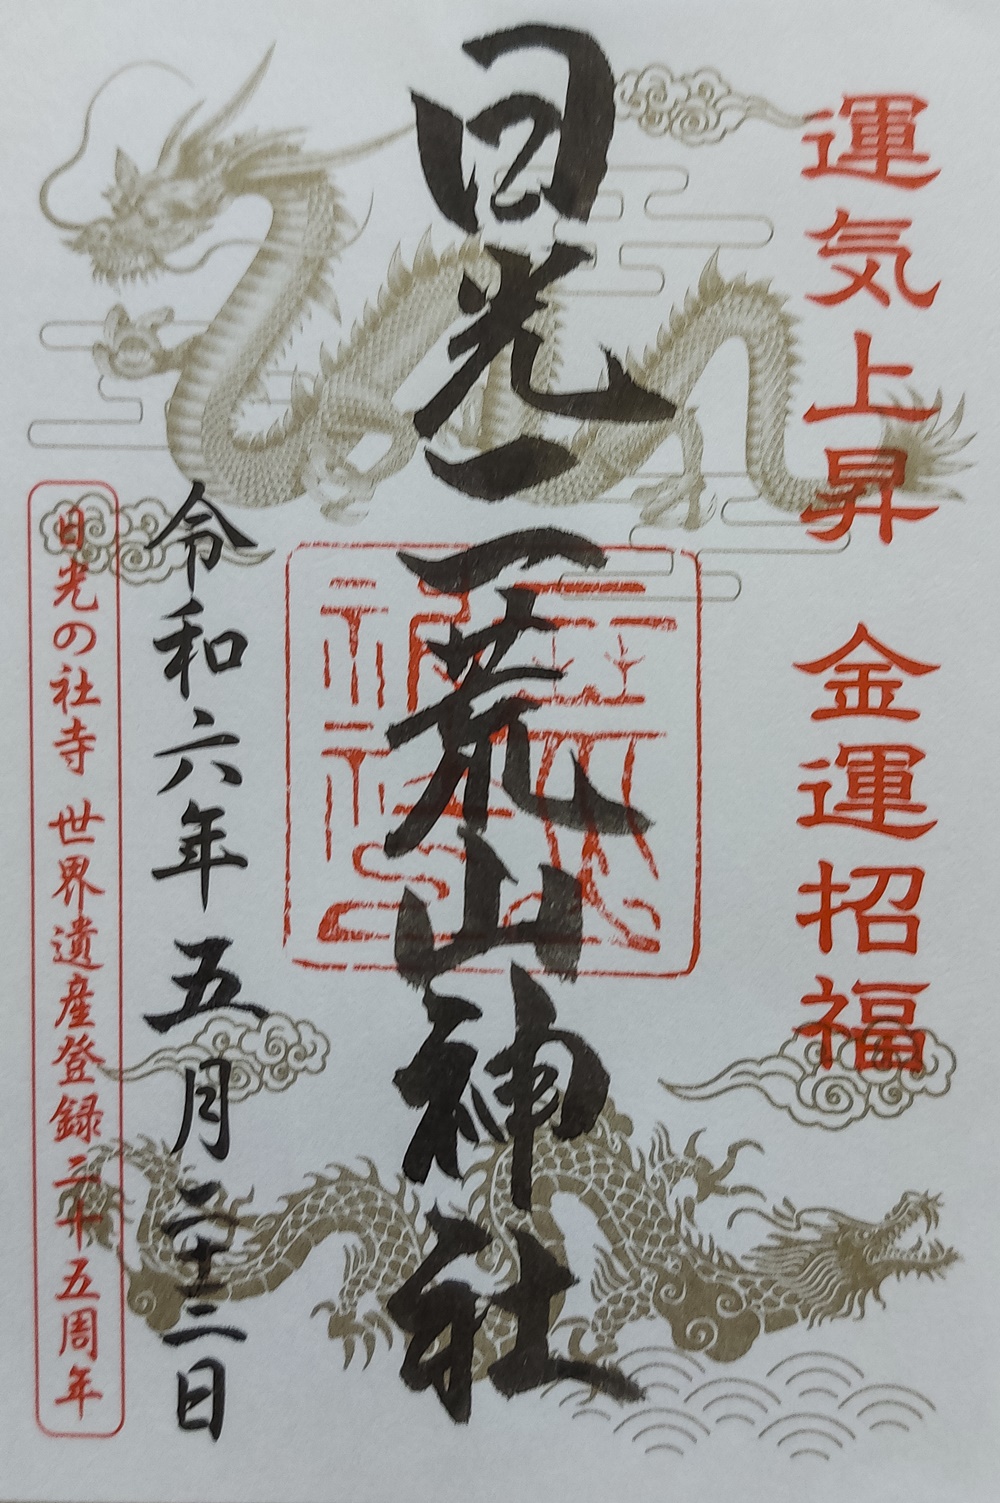 運気上昇 金運招福
日光二荒山神社
令和六年五月二十二日
日光の社寺 世界遺産登録二十五周年